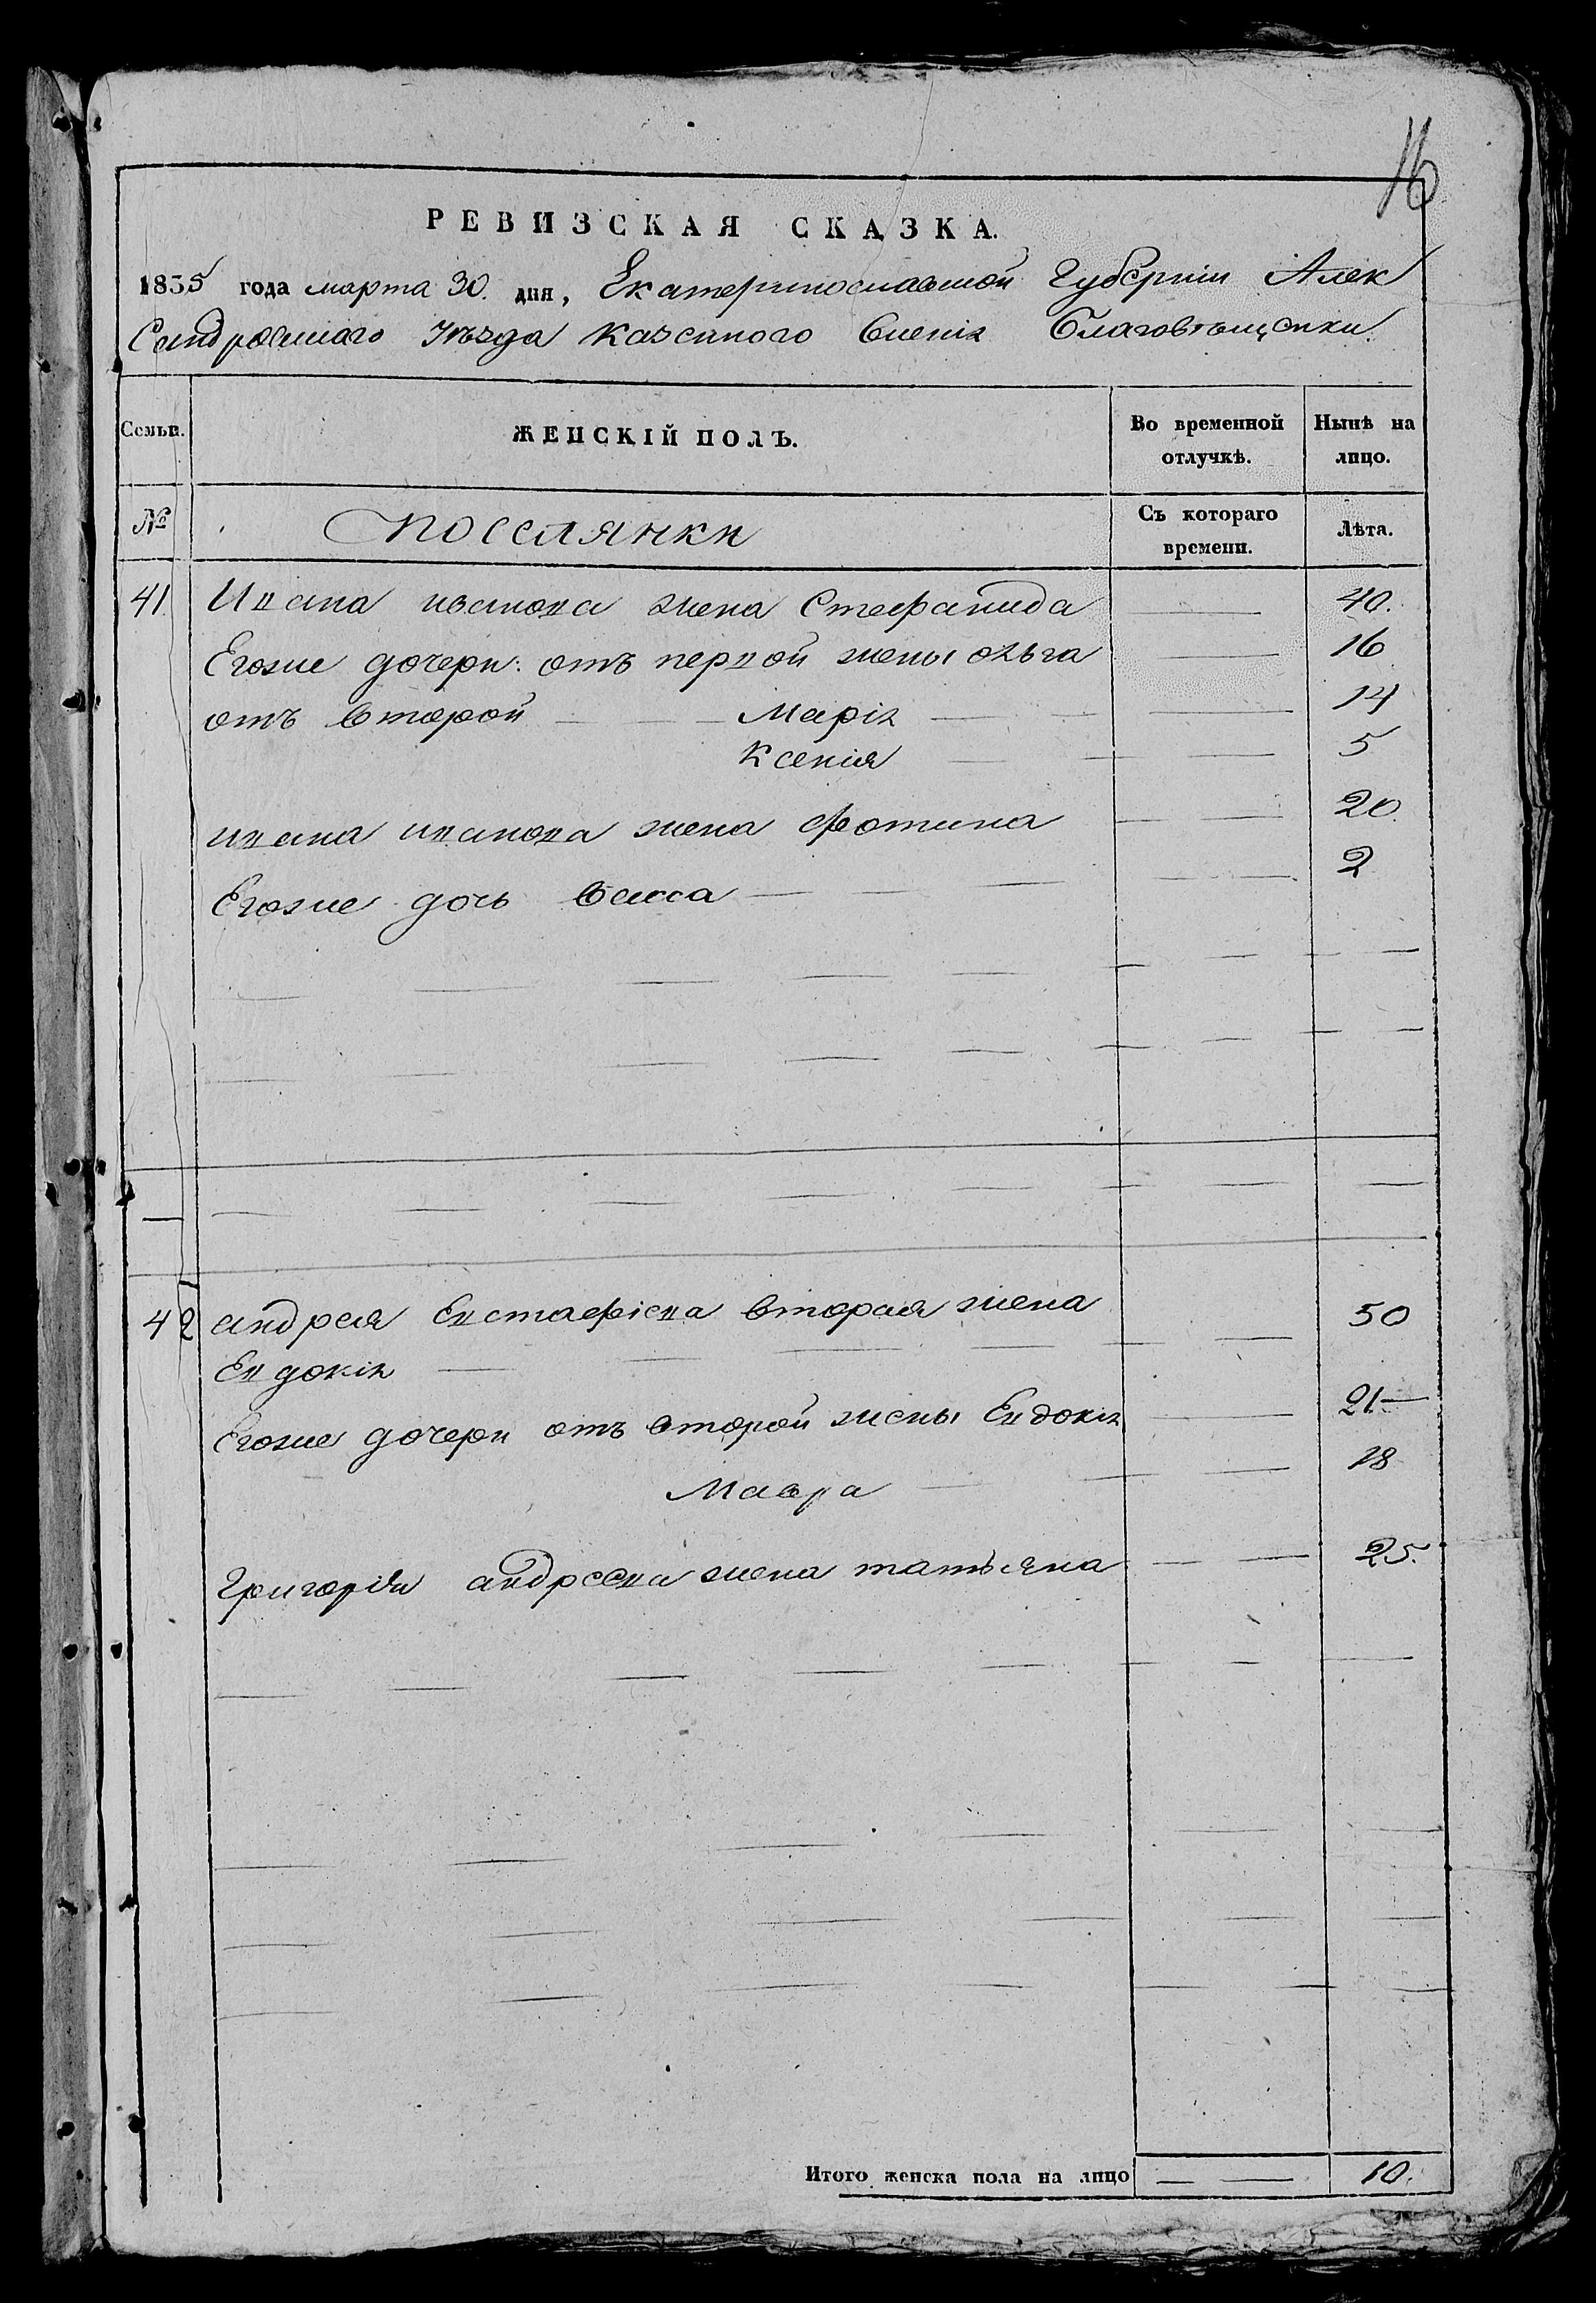 16
РЕВИЗСКАЯ СКАЗКА.
1835 года марта 30. дня, Екатеринославской Губерніи Алек
Сандровскаго Уѣзда казенного Селенія Благовѣщенки.
Семьи. ЖЕНСКІЙ ПОЛЪ. Во временной отлучкѣ. Нынѣ на лицо.
№ поселянки Съ котораго времени. Лѣта.
41 Ивана иванова жена Стефанида 40.
Егоже дочери: отъ первой жены ольга 16
отъ второй Марія 14
Ксенія 5
ивана иванова жена фотина 20
Егоже дочь васса 2
42 андрея Евстафіева вторая жена 50
Евдокія
Егоже дочери отъ второй жены Евдокія 21
Мавра 18
Григорія андреева жена татьяна 25.
Итого женска пола на лицо 10.